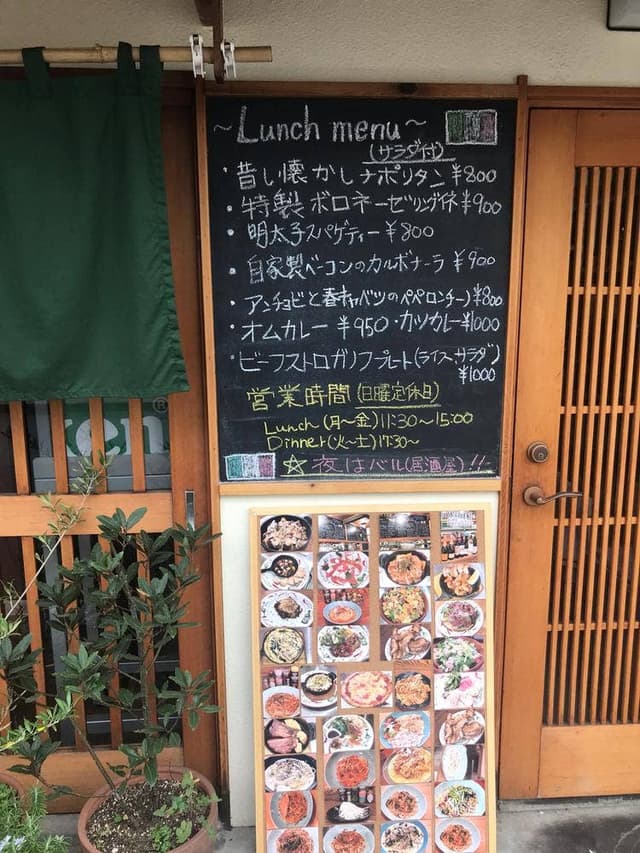 ~Lunch menu~
(サラダ付)
・昔し懐かしナポリタン ¥800
・特製 ボロネーゼリングイネ ¥900
・明太子スパゲティー ¥800
・自家製ベーコンのカルボナーラ ¥900
・アンチョビと春キャベツのペペロンチーノ ¥800
・オムカレー ¥950・カツカレー ¥1000
・ビーフストロガノフプレート(ライス、サラダ)
¥1000
営業時間(日曜定休日)
Lunch (月〜金) 11:30〜15:00
Dinner (火〜土) 17:30〜
☆夜はバル(居酒屋)!!
en
®